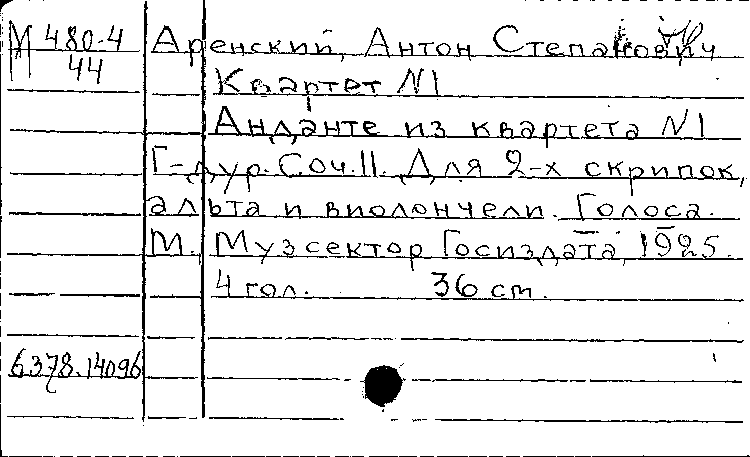 М 480-4 Аренский, Антон Степанович
44 Квартет N1
Анданте из квартета N1
Г-дур. Соч. 11. Для 2-х скрипок,
альта и виолончели. Голоса.
М., Музсектор Госиздата, 1925.
4 гол. 36 ст.
6378.14096